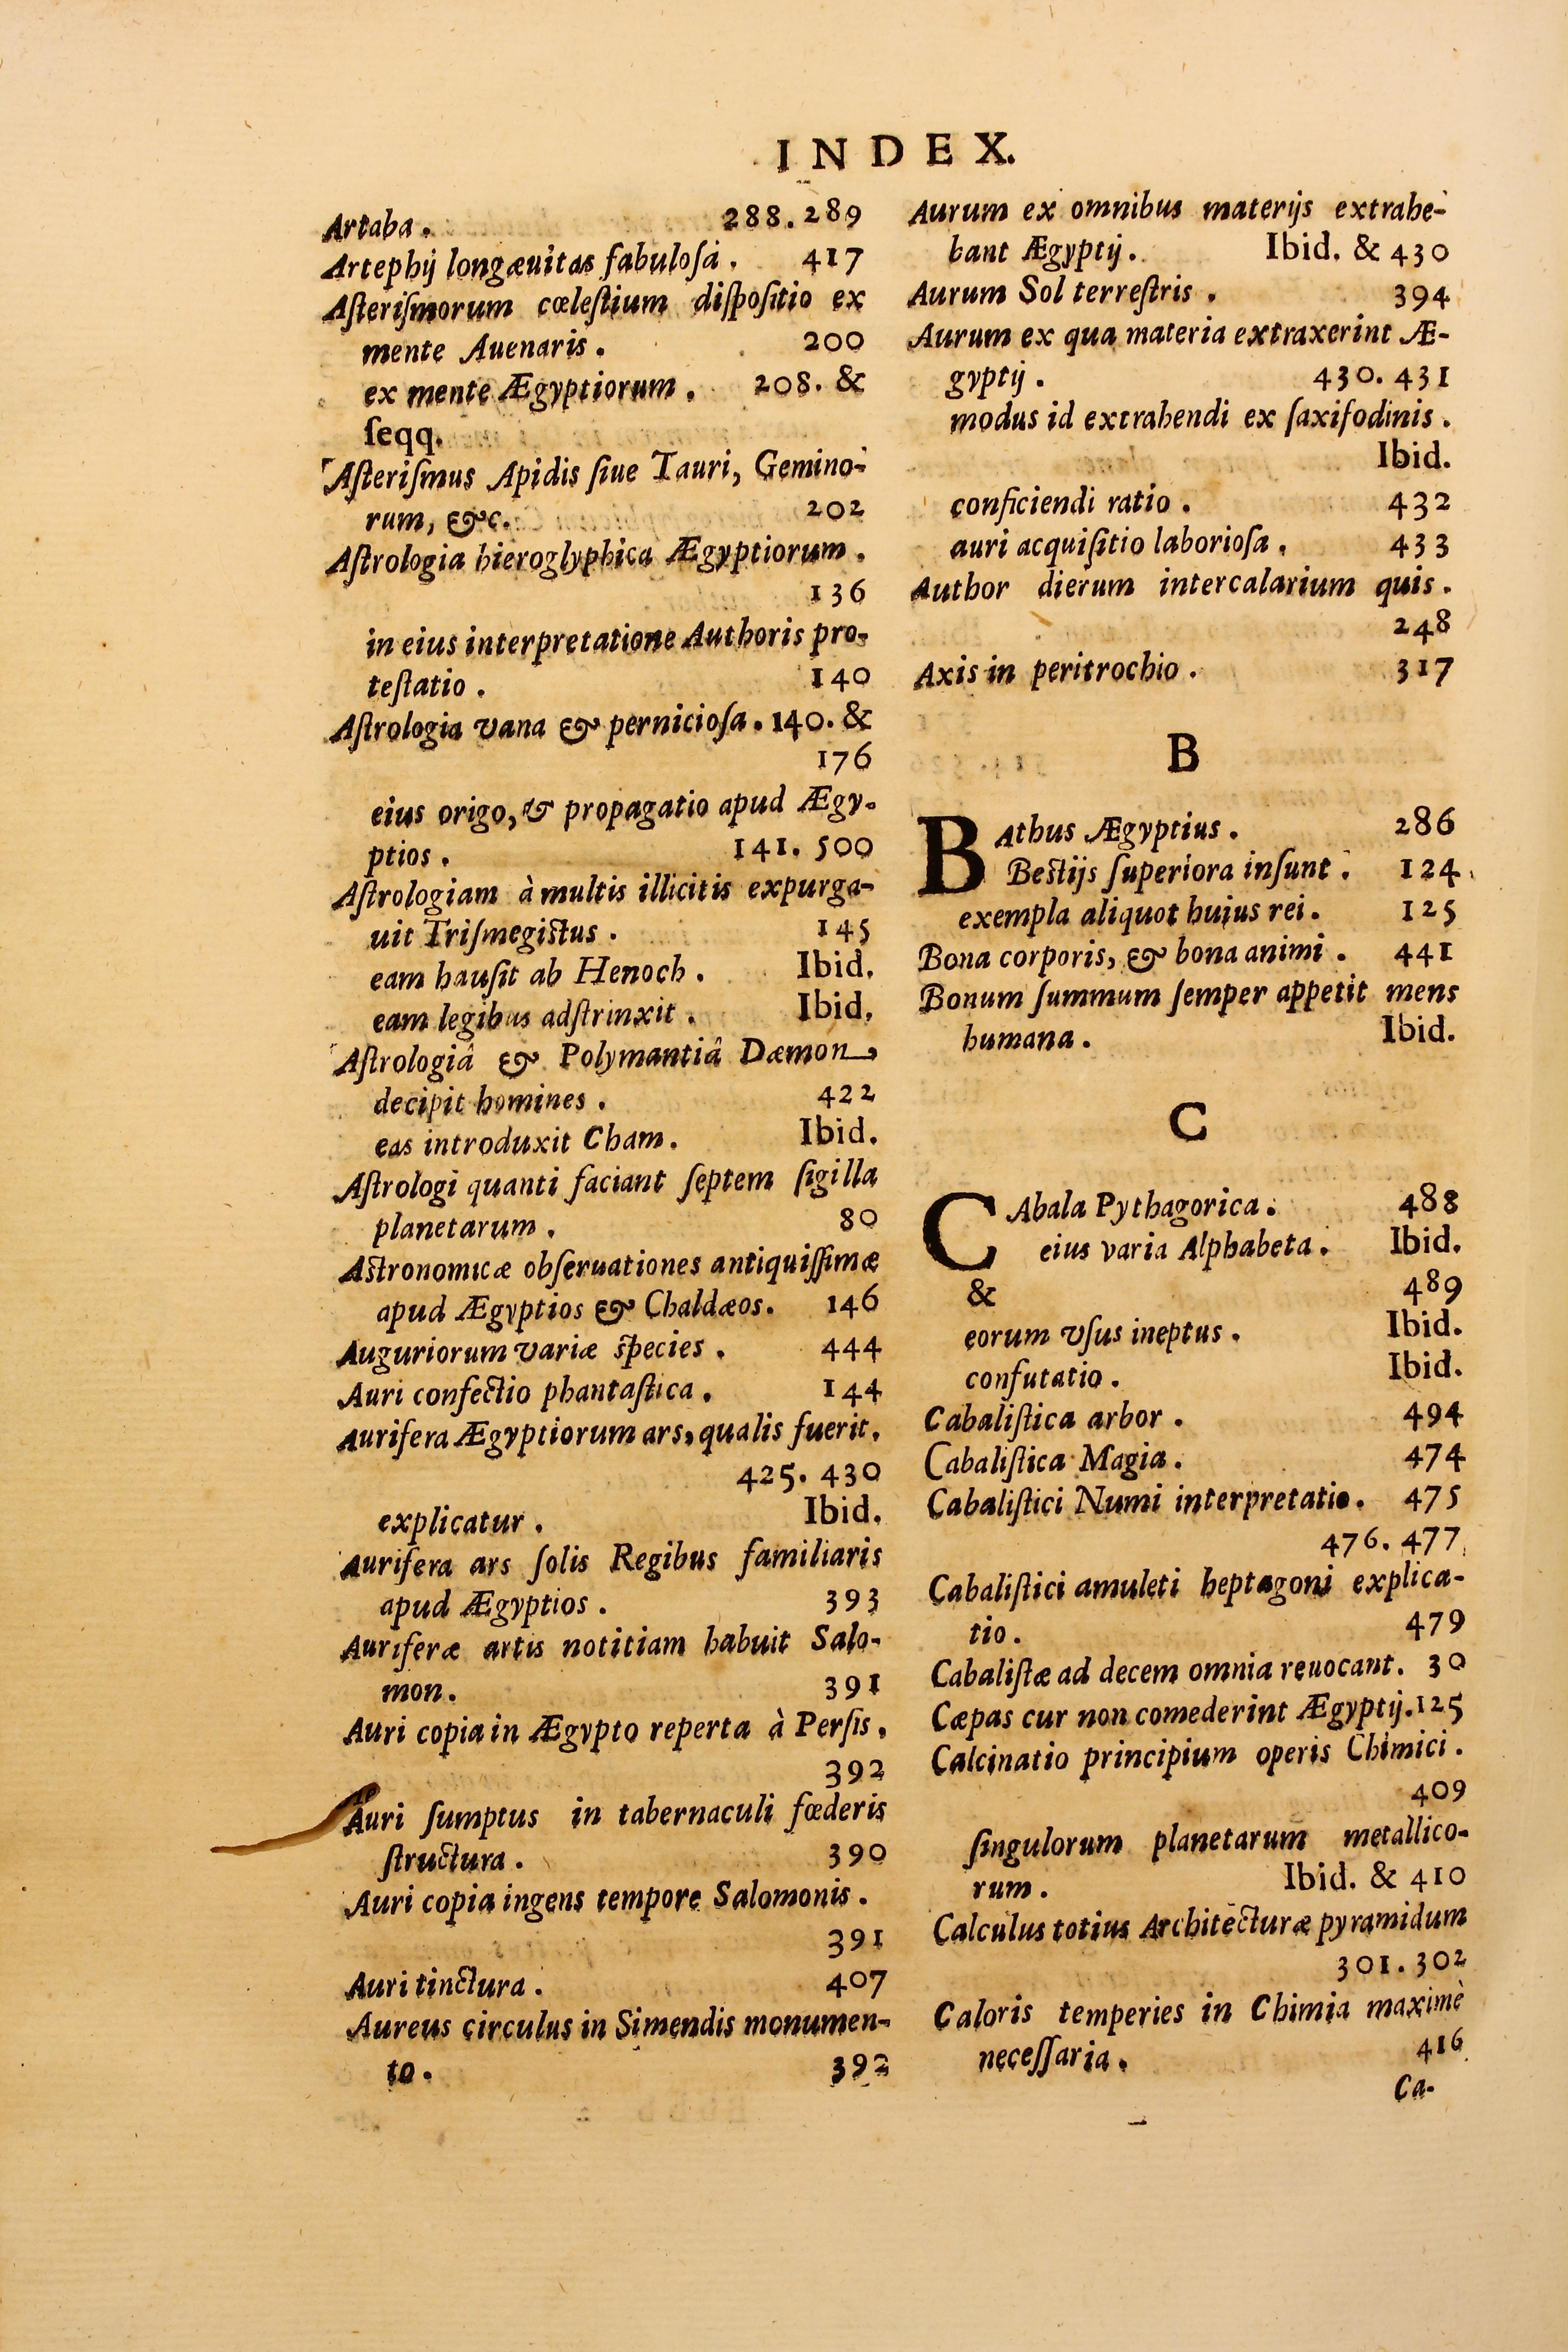 INDEX.
Artaba. 288.289
Artephij longæuitas fabuloſa. 417
Aſteriſmorum cœleſtium diſpoſitio ex
mente Auenaris. 200
ex mente Ægyptiorum. 208. &
ſeqq.
Aſteriſmus Apidis ſiue Tauri, Gemino-
rum, &c. 202
Aſtrologia hieroglyphica Ægyptiorum.
136
in eius interpretatione Authoris pro-
teſtatio. 140
Aſtrologia vana & pernicioſa. 140. &
176
eius origo, & propagatio apud Ægy-
ptios. 141. 500
Aſtrologiam à multis illicitis expurga-
uit Triſmegiſtus. 145
eam hauſit ab Henoch. Ibid.
eam legibus adſtrinxit. Ibid.
Aſtrologiâ & Polymantiâ Dæmon
decipit homines. 422
eas introduxit Cham. Ibid.
Aſtrologi quanti faciant ſeptem ſigilla
planetarum. 80
Aſtronomicæ obſeruationes antiquiſſimæ
apud Ægyptios & Chaldæos. 146
Auguriorum variæ ſpecies. 444
Auri confectio phantaſtica. 144
Aurifera Ægyptiorum ars, qualis fuerit.
425. 430
explicatur. Ibid.
Aurifera ars ſolis Regibus familiaris
apud Ægyptios. 393
Auriferæ artis notitiam habuit Salo-
mon. 391
Auri copia in Ægypto reperta à Perſis.
392
Auri ſumptus in tabernaculi fœderis
ſtructura. 390
Auri copia ingens tempore Salomonis.
391
Auri tinctura. 407
Aureus circulus in Simendis monumen-
to. 392
Aurum ex omnibus materijs extrahe-
bant Ægyptij. Ibid. & 430
Aurum Sol terreſtris. 394
Aurum ex qua materia extraxerint Æ-
gyptij. 430. 431
modus id extrahendi ex ſaxifodinis.
Ibid.
conficiendi ratio. 432
auri acquiſitio laborioſa. 433
Author dierum intercalarium quis.
248
Axis in peritrochio. 317
B
BAthus Ægyptius. 286
Beſtijs ſuperiora inſunt. 124
exempla aliquot huius rei. 125
Bona corporis, & bona animi. 441
Bonum ſummum ſemper appetit mens
humana. Ibid.
C
CAbala Pythagorica. 488
eius varia Alphabeta. Ibid.
& 489
eorum vſus ineptus. Ibid.
confutatio. Ibid.
Cabaliſtica arbor. 494
Cabaliſtica Magia. 474
Cabaliſtici Numi interpretatio. 475
476. 477
Cabaliſtici amuleti heptagoni explica-
tio. 479
Cabaliſtæ ad decem omnia reuocant. 30
Cæpas cur non comederint Ægyptij. 125
Calcinatio principium operis Chimici.
409
ſingulorum planetarum metallico-
rum. Ibid. & 410
Calculus totius Architecturæ pyramidum
301. 302
Caloris temperies in Chimia maximè
neceſſaria. 416
Ca-